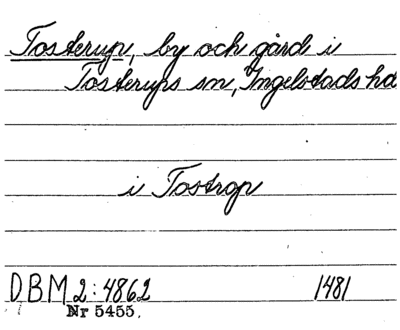 Tosterup, by och gård i
Tosterups sn, Ingelstads hd
i Tostrop
DBM 2:4862 1481
Nr 5455.